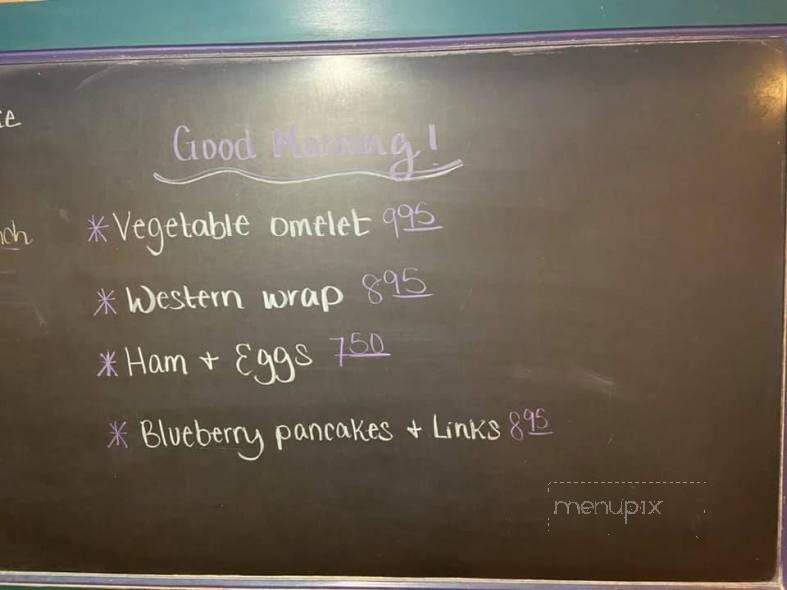 Good Morning!
* Vegetable omelet 9 95
* Western wrap 8 95
* Ham + Eggs 7 50
* Blueberry pancakes + Links 8 95
menupix